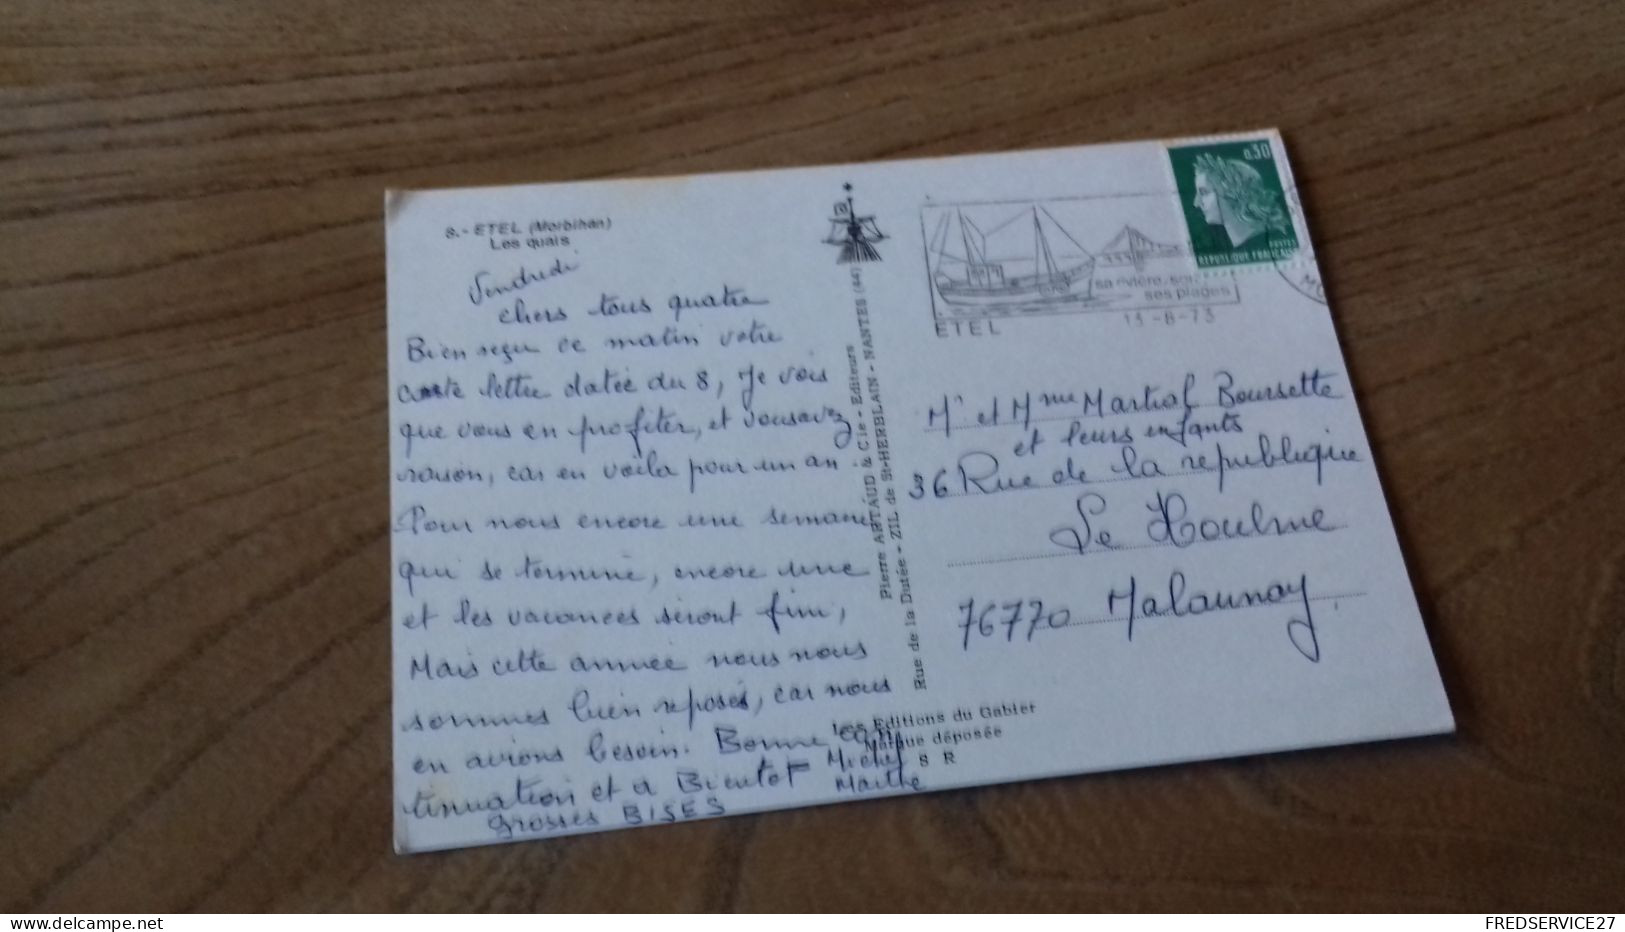 8.- ETEL (Morbihan)
Les quais
Vendredi
chers tous quatre
Bien reçu ce matin votre
lettre datée du 8, Je vois
que vous en profiter, et vousavez
raison, car en voila pour un an
Pour nous encore une semaine
qui se termine, encore une
et les vacances seront fini,
Mais cette année nous nous
sommes bien reposés, car nous
en avions besoin. Bonne con
tinuation et a Bientot Michel
Marthe
grosses BISES
Pierre ARTAUD & Cie - Editeurs
Rue de la Dutée - ZIL de St-HERBLAIN - NANTES (44)
Les Editions du Gabier
Marque déposée
S R
0,30
POSTES
REPUBLIQUE FRANCAISE
sa rivière, son
ses plages
ETEL
13-8-73
Mr et Mme Martial Boursette
et leurs enfants
36 Rue de la republique
Le Houlme
76770 Malaunay
delcampe.net
FREDSERVICE27